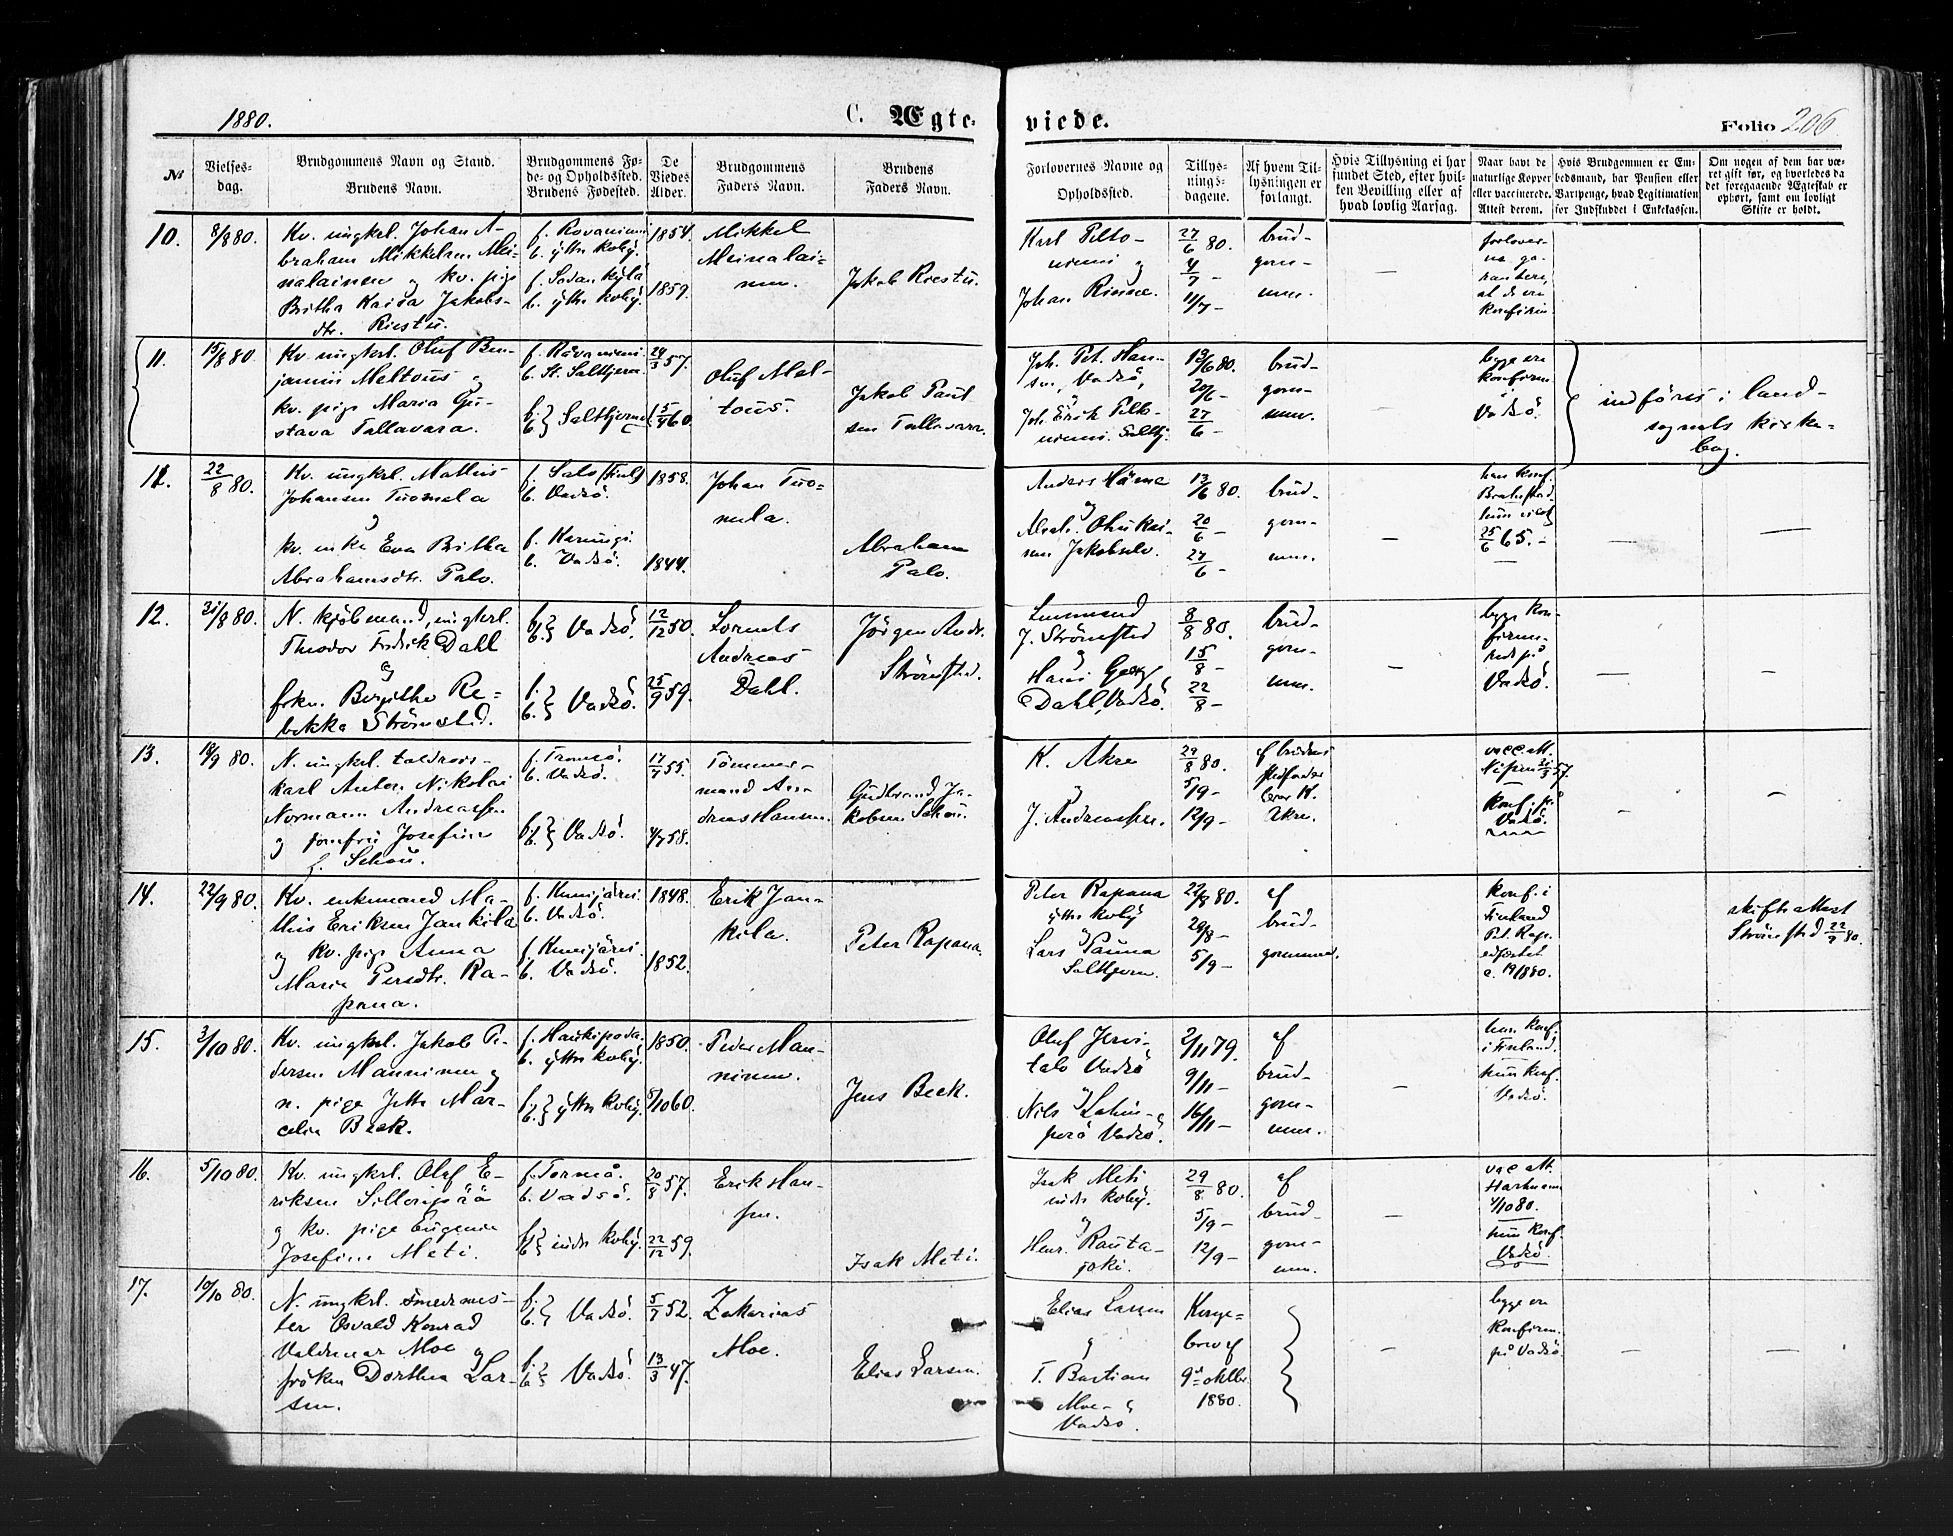 1880.
C. Ægte-
viede.
Folio 206
№
Vielses-
dag.
Brudgommens Navn og Stand.
Brudens Navn.
Brudgommens Fø-
de- og Opholdssted.
Brudens Fødested.
De
Viedes
Alder.
Brudgommens
Faders Navn.
Brudens
Faders Navn.
Forlovernes Navne og
Opholdssted.
Tillys-
nings-
dagene.
Af hvem Til-
lysningen er
forlangt.
Hvis Tillysning ei har
fundet Sted, efter hvil-
ken Bevilling eller af
hvad lovlig Aarsag.
Naar havt de
naturlige Kopper
eller vaccinerede.
Attest derom.
Hvis Brudgommen er Em-
bedsmand, har Pension eller
Vartpenge, hvad Legitimation
for Indskuddet i Enkekassen.
Om nogen af dem har væ-
ret gift før, og hvorledes da
det foregaaende Ægteskab er
ophørt, samt om lovligt
Skifte er holdt.
10.
8/8 80.
Kv. ungkrl. Johan A-
braham Mikkelsen Mei-
nalainen og kv. pige
Britha Kaisa Jakobs-
dtr. Riestu.
f. Rovaniemi
b. yttre Koby.
f. Sodankylä
b. yttre Koby.
1854.
1859.
Mikkel
Meinalai-
nen.
Jakob Riestu.
Karl Pelto-
niemi og
Johan Rinne.
27/6 80.
4/7 -
11/7 -
brud-
gom-
men.
-
forlover-
ne ga-
rantere,
at de ere
konfirm.
11.
15/8 80.
Kv. ungkrl. Oluf Ben-
jamin Meltous og
kv. pige Maria Gu-
stava Tallavara.
f. Rovaniemi.
b. St. Saltkjern.
f. } Saltkjerne
b.
24/3 57.
5/4 60.
Oluf Mel-
tous.
Jakob Paul
sen Tallavara.
Joh. Pet. Han-
sen, Vadsö,
og
Joh. Erik Pelto-
niemi. Saltkj.
13/6 80.
20/6 -
27/6 -
brud-
gom-
men.
-
begge ere
konfirm.
Vadsö.
indföres i land-
sognets kirke-
bog.
11.
22/8 80.
Kv. ungkrl. Mathis
Johansen Tuomela
og
kv. enke Eva Britha
Abrahamsdtr. Palo.
f. Salo (Finl.)
b. Vadsö.
f. Karungi.
b. Vadsö.
1858.
1844.
Johan Tuo-
mela.
Abraham
Palo.
Anders Häme
og
Abrah. Olukai-
nen Jakobselv.
13/6 80.
20/6 -
27/6 -
brud-
gom-
men.
-
han konf.
Brahestad
hun
25/6 65. -
-
-
12.
31/8 80.
N. kjöbmand, ungkrl.
Theodor Fredrik Dahl
og
frkn. Bergitha Re-
bekka Strömsted.
f. } Vadsö.
b.
f. } Vadsö.
b.
12/12 50.
25/9 59.
Andreas
Dahl.
Jörgen Andr.
Strömsted.
Lensmand
J. Strömsted
og
Hans Georg
Dahl, Vadsö.
8/8 80.
15/8 -
22/8 -
brud-
gom-
men.
-
begge kon-
firme-
rede på
Vadsö.
-
-
13.
18/9 80.
N. ungkrl. toldrors-
karl Anton Nikolai
Normann Andreassen
og jomfru Josefine
f. Schou.
f. Tromsö.
b. Vadsö.
f. } Vadsö.
b.
17/7 55.
4/7 58.
Tömmer-
mand An-
dreas Hansen.
Gudbrand Ja-
kobsen Schou.
K. Akre
og
J. Andreassen.
29/8 80.
5/9 -
12/9 -
af brudens
stedfader
lærer K.
Akre.
vacc. att.
57.
konf. på
Vadsö.
-
-
14.
22/9 80.
Kv. enkemand Ma-
this Eriksen Jankila
og kv. pige Anna
Maria Persdtr. Ra-
pana.
f. Kemijärvi.
b. Vadsö.
f. Kemijärvi.
b. Vadsö.
1848.
1852.
Erik Jan-
kila.
Peter Rapana.
Peter Rapana
yttre Koby
og
Lars Pauna
Saltkjern.
22/8 80.
29/8 -
5/9 -
af
brud-
gommen.
konf. i
Finland
Pet. Rap.
edfæstet
skifteattest
Strömsted 22/9 80.
15.
3/10 80.
Kv. ungkrl. Jakob Pe-
dersen Manninen og
n. pige Jetta Mar-
celie Beck.
f. Haukipoda.
b. yttre Koby.
f. } yttre Koby.
b.
1850.
8/10 60.
Peder Man-
ninen.
Jens Beck.
Oluf Jervi-
talo Vadsö
og
Nils Lahin-
perä Vadsö.
2/11 79.
9/11 -
16/11 -
af
brud-
gom-
men.
-
han konf.
i Finland.
hun konf.
Vadsö.
16.
5/10 80.
Kv. ungkrl. Olaf E-
riksen Silleripää
og kv. pige Eugenie
Josefine Meti.
f. Torneå.
b. Vadsö.
f. } indre Koby.
b.
20/8 57.
22/12 59.
Erik Han-
sen.
Isak Meti.
Isak Meti
indre Koby.
og
Henr. Rauta-
joki.
29/8 80.
5/9 -
12/9 -
af
brud-
gom-
men.
-
vac. att.
4/10 80.
hun konf.
Vadsö.
17.
10/10 80.
N. ungkrl. smedemes-
ter Osvald Konrad
Valdemar Moe og
fröken Dorthea Lar-
sen.
f. } Vadsö.
b.
f. } Vadsö.
b.
5/7 52.
13/3 47.
Zakarias
Moe.
Elias Larsen.
Elias Larsen
og
T. Bastian
Moe -
Vadsö.
Konge-
brev af
9de oktbr.
1880.
-
begge ere
konfirm.
på Vadsö.